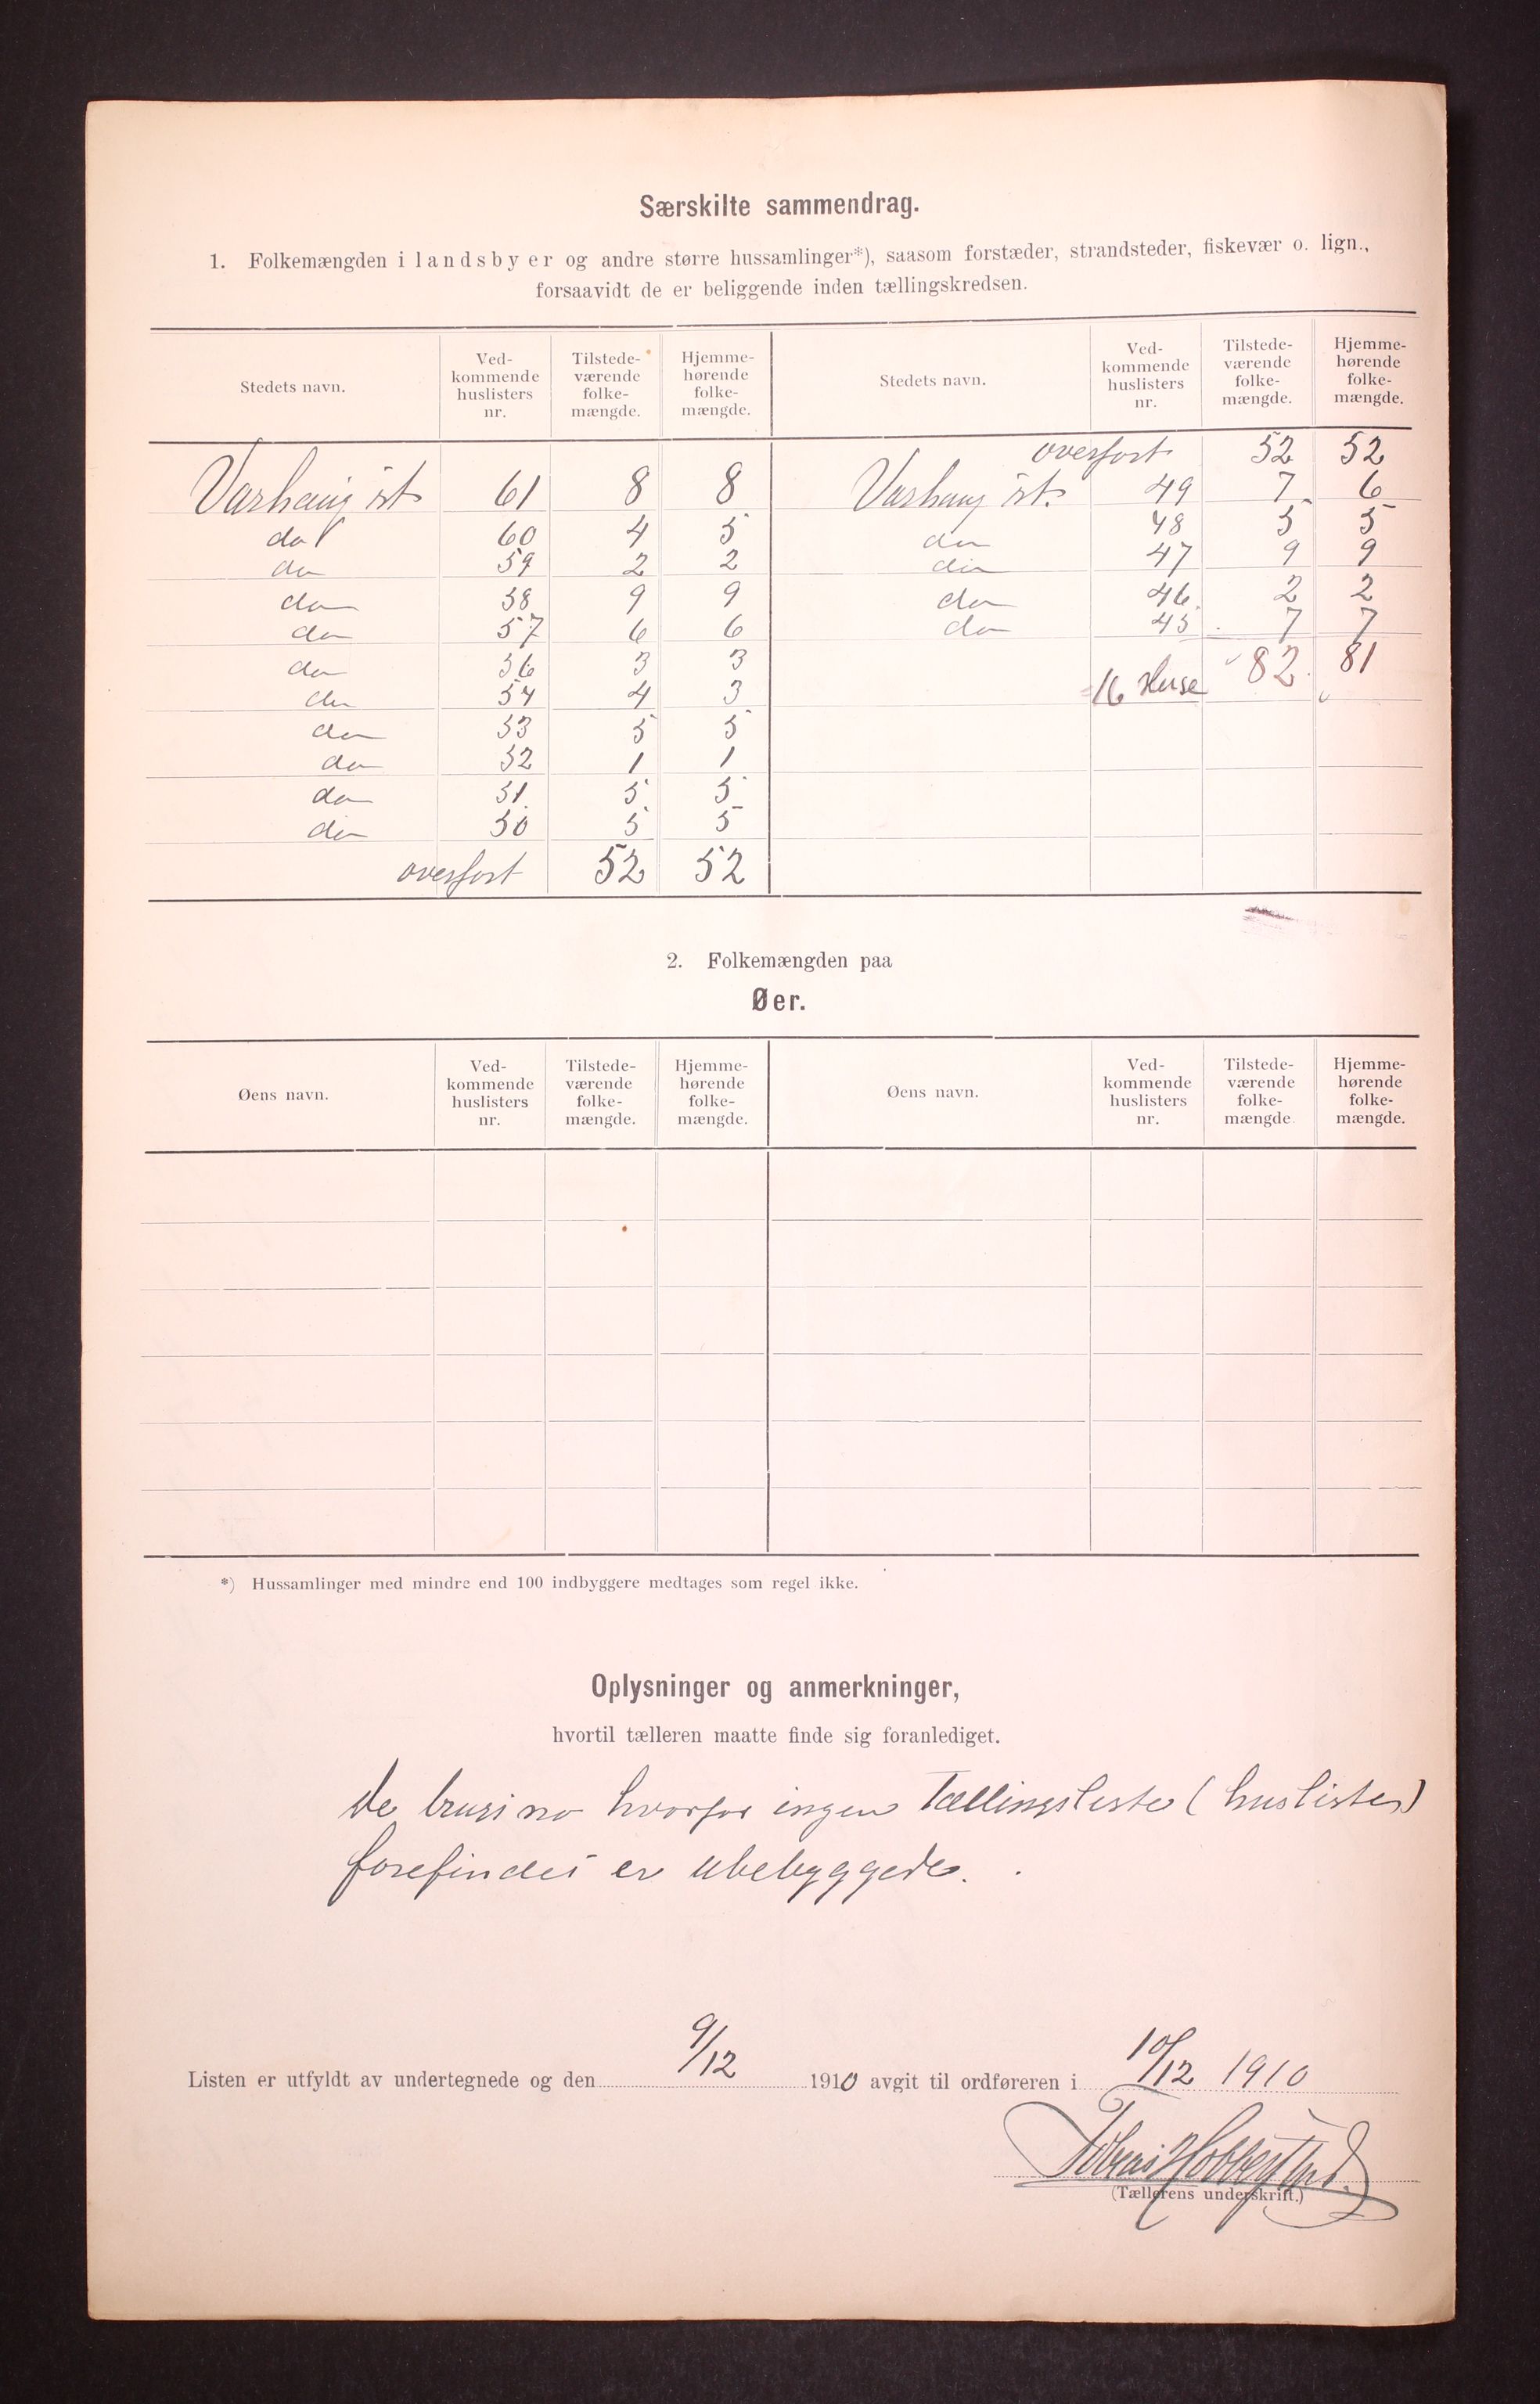 Særskilte sammendrag.
1. Folkemængden i landsbyer og andre større hussamlinger*), saasom forstæder, strandsteder, fiskevær o. lign.,
forsaavidt de er beliggende inden tællingskredsen.
Stedets navn. Ved-kommende huslisters nr. Tilstede-værende folke-mængde. Hjemme-hørende folke-mængde. Stedets navn. Ved-kommende huslisters nr. Tilstede-værende folke-mængde. Hjemme-hørende folke-mængde.
overført 52 52
Varhaug st 61 8 8 Varhaug st. 49 7 6
do 60 4 5 do 48 5 5
do 59 2 2 do 47 9 9
do 58 9 9 do 46 2 2
do 57 6 6 do 45 7 7
do 56 3 3 16 Huse 82 81
do 54 4 3
do 53 5 5
do 52 1 1
do 51 5 5
do 50 5 5
overført 52 52
2. Folkemængden paa
Øer.
Øens navn. Ved-kommende huslisters nr. Tilstede-værende folke-mængde. Hjemme-hørende folke-mængde. Øens navn. Ved-kommende huslisters nr. Tilstede-værende folke-mængde Hjemme-hørende folke-mængde.
*) Hussamlinger med mindre end 100 indbyggere medtages som regel ikke.
Oplysninger og anmerkninger,
hvortil tælleren maatte finde sig foranlediget.
de brugsno hvorfor ingen Tællingsliste (huslister)
forefindes er ubebyggede.
Listen er utfyldt av undertegnede og den 9/12 1910 avgit til ordføreren i 10/12 1910
(Tællerens underskrift.)